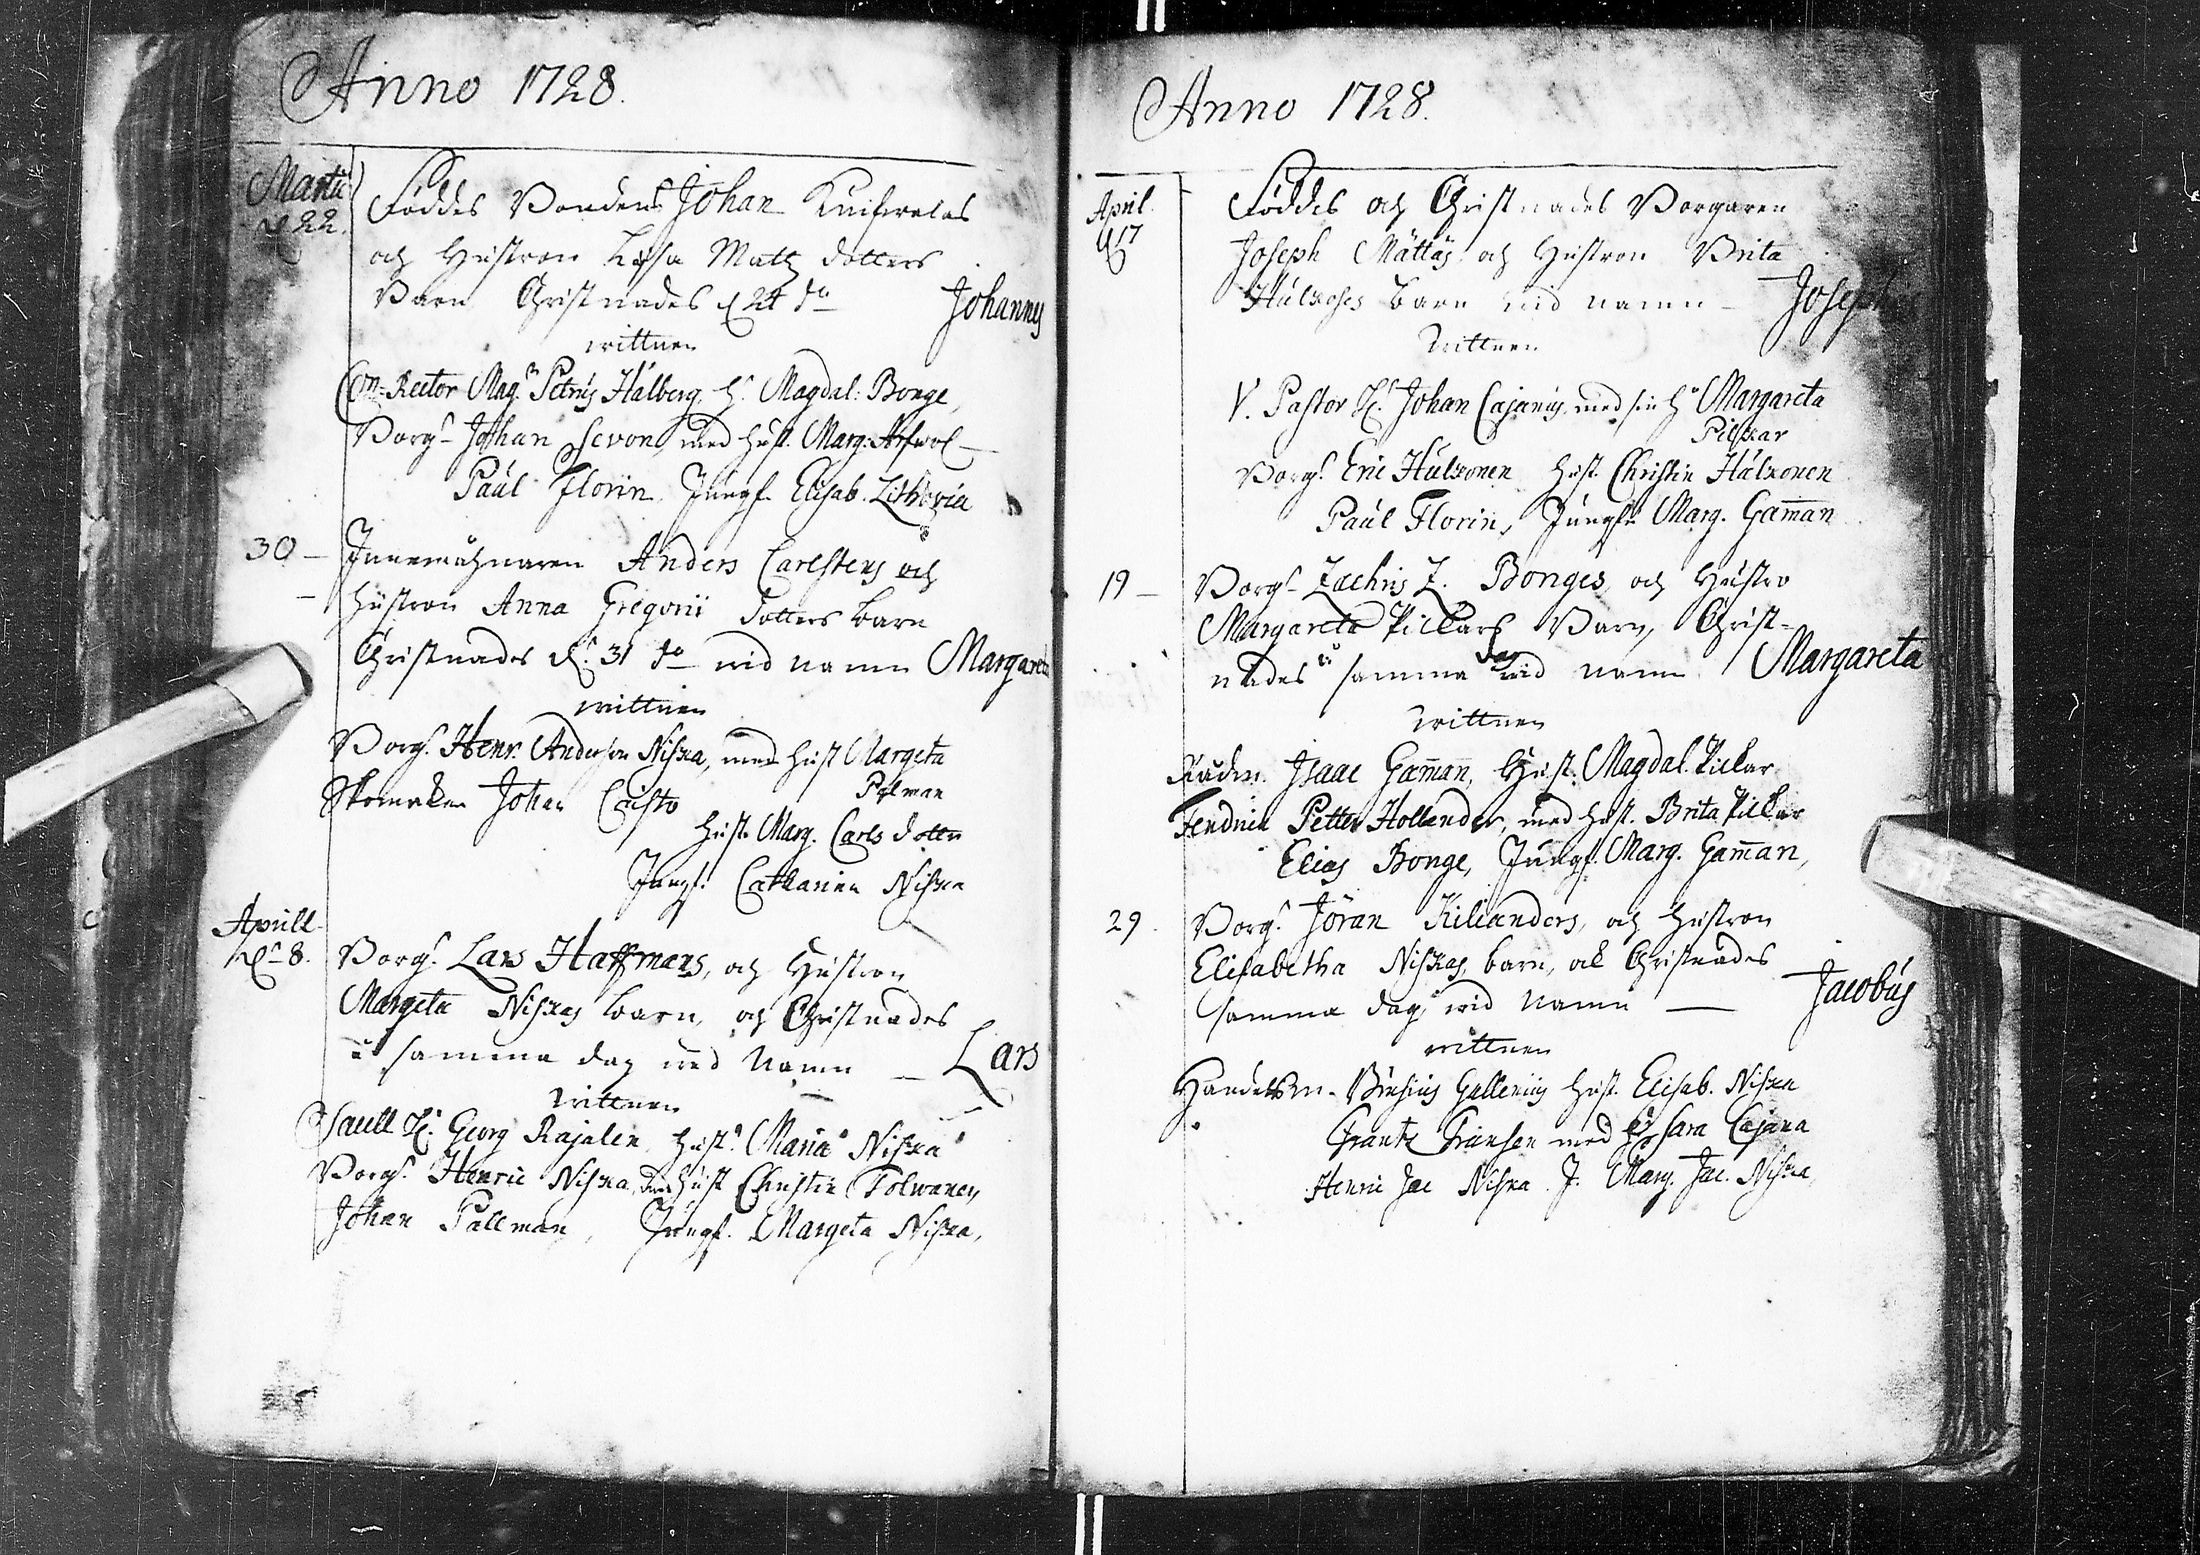 Anno 1728.
Martii
d 22.
Föddes Bondens Johan Kuiferelas
och Hustron Lisa Matz dotters
Barn Christnades d 24 do Johannes
wittnen
Con-Rector Magr. Petrus Hålberg, h. Magdal: Bonge,
Borgr Johan Sevon, med hust. Marg:
Paul Florin Jungf. Elisab. Lithovia
30 - Innewåhnaren Anders Carlstens och
hustron Anna Gregorii dotters barn
Christnades d. 31 do wid namn Margareta
wittnen
Borgr. Henr. Anderson Niska, med hust Margeta
Polman
Skomaken Johan Casto
hust. Marg. Carls dotter
Jungf. Catharina Niska
Aprill
d 8.
Borgr. Lars Haffmans, och Hustron
Margeta Niskas barn, och Christnades
å samma dag wid Namn - Lars
wittnen
H. Georg Rajalin, hust. Maria Niska
Borgr. Henric Niska, hust Christin Tolwanen
Johan Pallman, Jungf. Margeta Niska,
Anno 1728.
April.
d 17
Föddes och Christnades Borgaren
Joseph Mättäs och Hustron Brita
Hulkoses barn wid namn - Joseph
wittnen
V. Pastor H. Johan Cajanus, med sin h. Margareta
Pilkar
Borgr. Eric Hulkonen hust. Christin Hulkonen
Paul Florin, Jungfr Marg. Gamman
19 - Borgr. Zachris Z. Bonges, och Hustro
Margareta Pilkars Barn, Christ-
nades å samma dag wid namn Margareta
wittnen
Rådm. Isaac Gamman, Hust. Magdal. Pilkar
Fendrich Petter Hollender, med hust. Brita Pilkar
Elias Bonge, Jungf. Marg. Gamman,
29. Borgr. Jöran Kilianders, och hustron
Elisabetha Niskas, barn, ok Christnades
samma dag, wid Namn - Jacobus
wittnen
Handelsm. Gallenius hust. Elisab. Niska
Frantz Fransen med Sara Cajana
Henric Jac Niska J. Marg. Jac. Niska,